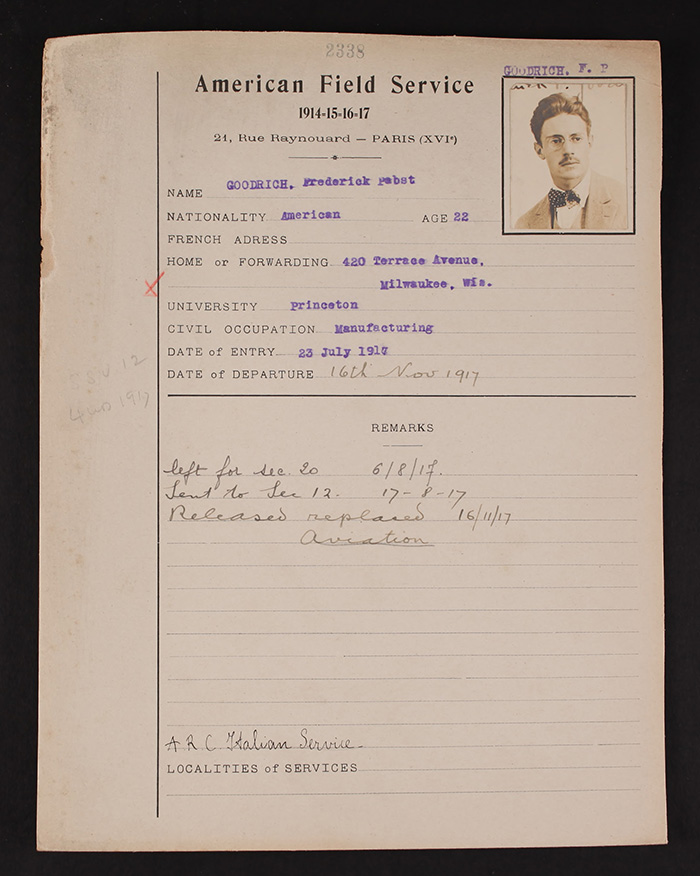 2338
GOODRICH. F. P
American Field Service
1914-15-16-17
21, Rue Raynouard — PARIS (XVIe)
NAME GOODRICH, Frederick Pabst
NATIONALITY American AGE 22
FRENCH ADRESS
HOME or FORWARDING 420 Terrace Avenue,
Milwaukee, Wis.
UNIVERSITY Princeton
CIVIL OCCUPATION Manufacturing
DATE of ENTRY 23 July 1917
DATE of DEPARTURE 16th Nov 1917
12
1917
REMARKS
left for sec. 20 6/8/17.
Sent to Sec 12. 17-8-17
Released replaced 16/11/17
Aviation
A R C Italian Service
LOCALITIES of SERVICES